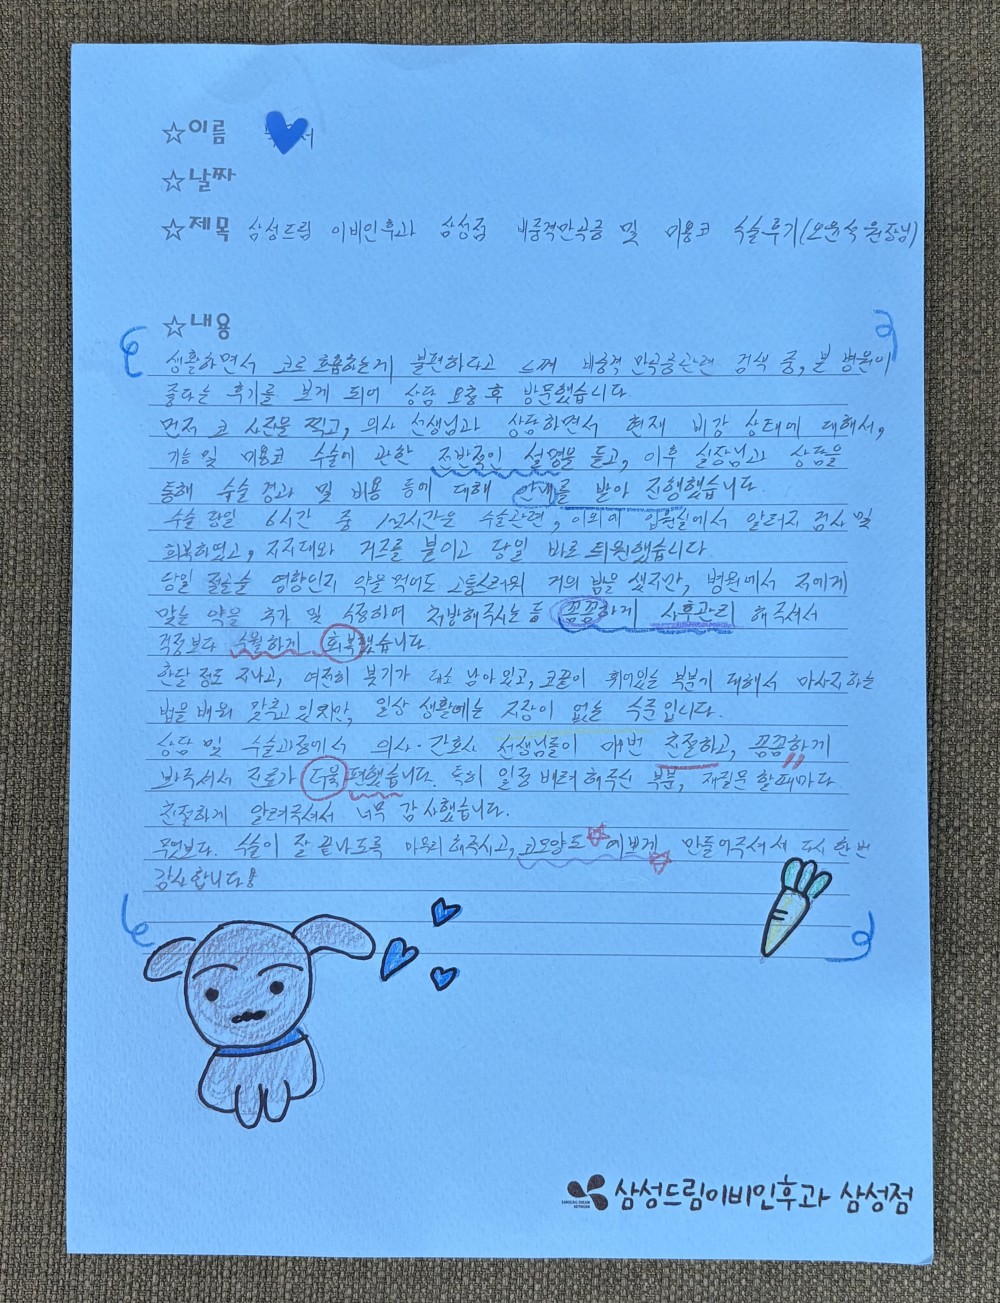 ☆이름
☆날짜
☆제목 삼성드림 이비인후과 삼성점 비중격만곡증 및 미용코 수술후기(오윤석 원장님)
☆내용
생활하면서 코로 호흡하는게 불편하다고 느껴 비중격 만곡증관련 검색 중, 본 병원이
좋다는 후기를 보게 되어 상담 요청 후 방문했습니다
먼저 코 사진을 찍고, 의사 선생님과 상담하면서 현재 비강 상태에 대해서,
기능 및 미용코 수술에 관한 전반적인 설명을 듣고, 이후 실장님과 상담을
통해 수술 경과 및 비용 등에 대해 안내를 받아 진행했습니다.
수술 당일 6시간 중 1~2시간은 수술관련, 이외에 입원실에서 알러지 검사 및
회복하였고, 지지대와 거즈를 붙이고 당일 바로 퇴원했습니다.
당일 절골술 영향인지 약을 먹어도 고통스러워 거의 밤을 샜지만, 병원에서 저에게
맞는 약을 추가 및 수정하여 처방해주시는 등 꼼꼼하게 사후관리 해주셔서
걱정보다 수월하게 회복했습니다.
한달 정도 지나고, 여전히 붓기가 다소 남아있고, 코끝이 휘어있는 부분에 대해서 마사지하는
법을 배워 맞추고 있지만, 일상 생활에는 지장이 없는 수준입니다.
상담 및 수술과정에서 의사·간호사 선생님들이 매번 친절하고, 꼼꼼하게
봐주셔서 진료가 더욱 편했습니다. 특히 일정 배려 해주신 부분, 재질문 할때마다
친절하게 알려주셔서 너무 감사했습니다.
무엇보다. 수술이 잘 끝나도록 마무리 해주시고, 코모양도 예쁘게 만들어주셔서 다시 한번
감사합니다!
삼성드림이비인후과 삼성점